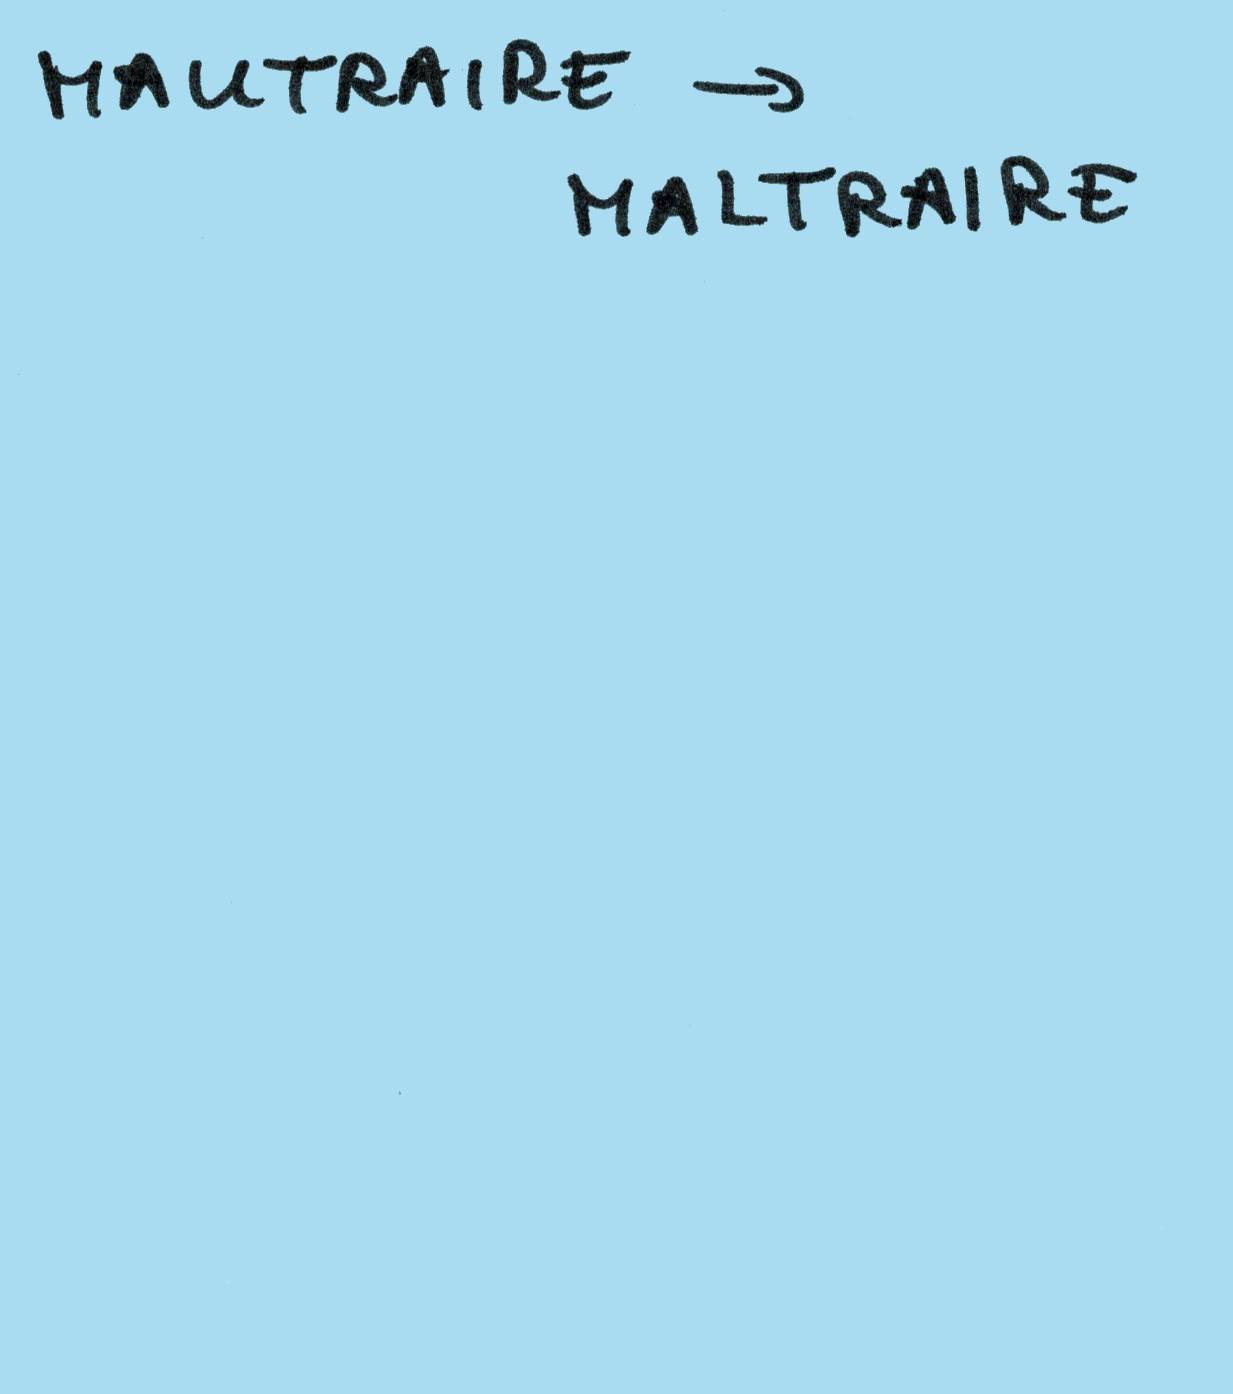 MAUTRAIRE →
MALTRAIRE